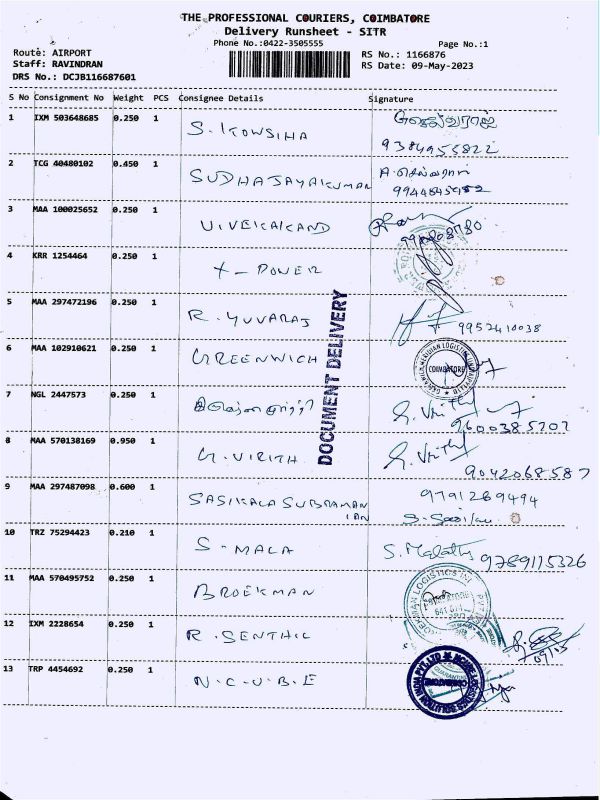 THE PROFESSIONAL COURIERS, COIMBATORE
Delivery Runsheet - SITR
Phone No.:0422-3505555
Page No.:1
Route: AIRPORT
Staff: RAVINDRAN
DRS No.: DCJB116687601
RS No.: 1166876
RS Date: 09-May-2023
S No Consignment No Weight PCS Consignee Details Signature
1 IXM 503648685 0.250 1 S. KOWSIHA
9384955822
2 TCG 40480102 0.450 1 SUDHAJAYAKUMAR
3 MAA 100025652 0.250 1 VIVEKAKAND
4 KRR 1254464 0.250 1 X - POWER
5 MAA 297472196 0.250 1 R. YUVARAJ 9952410038
6 MAA 102910621 0.250 1 GREENWICH
COIMBATORE
7 NGL 2447573 0.250 1
9600385202
8 MAA 570138169 0.950 1 G. VIRITH
9042068587
9 MAA 297487098 0.600 1 SASIKALA SUBRAMANIAN 9791269494
10 TRZ 75294423 0.210 1 S - MALA S. Malathy 9789115326
11 MAA 570495752 0.250 1 BROEKMAN
12 IXM 2228654 0.250 1 R. SENTHIL
13 TRP 4454692 0.250 1 N.C.U.B.E
DOCUMENT DELIVERY